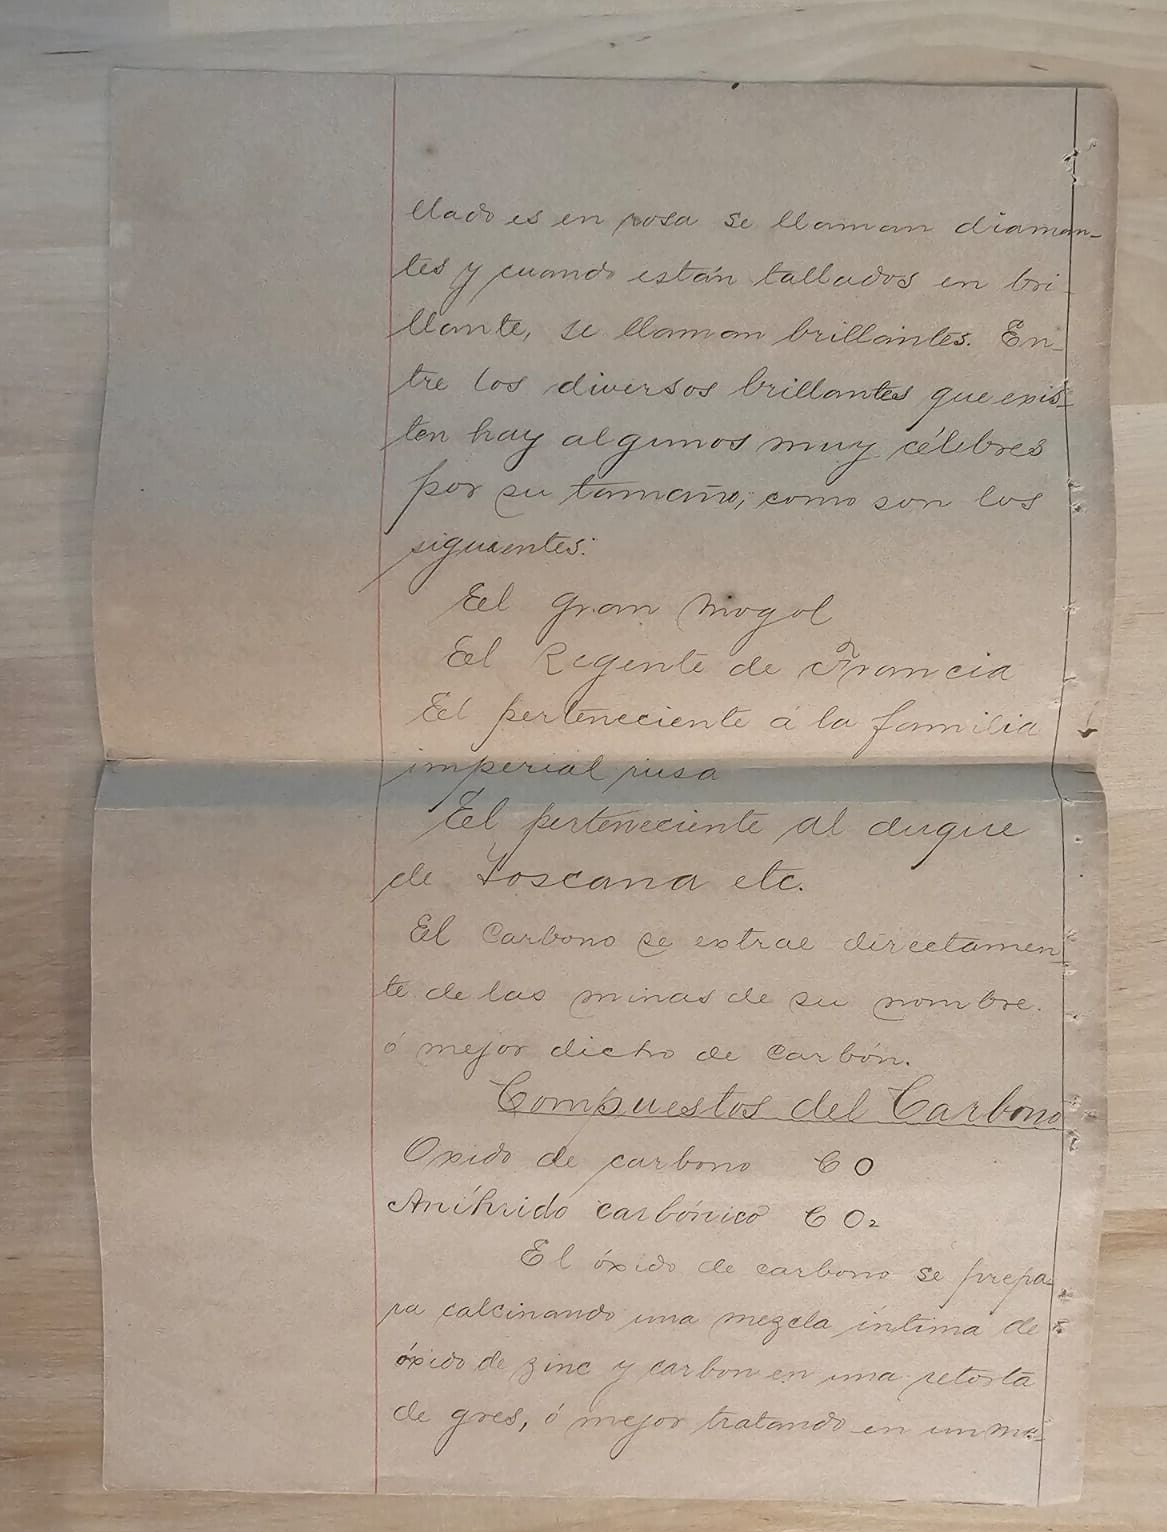 llado es en rosa se llaman diaman-
tes y cuando están tallados en bri-
llante, se llaman brillantes. En-
tre los diversos brillantes que exis-
ten hay algunos muy célebres
por su tamaño, como son los
siguientes:
El gran Mogol
El Regente de Francia
El perteneciente á la familia
imperial rusa
El perteneciente al duque
de Toscana etc.
El Carbono se extrae directamen-
te de las minas de su nombre.
ó mejor dicho de Carbón.
Compuestos del Carbono
Oxido de carbono CO
Aníhrido carbónico CO₂
El óxido de carbono se prepa-
ra calcinando una mezcla íntima de
óxido de zinc y carbon en una retorta
de gres, ó mejor tratando en un ma-